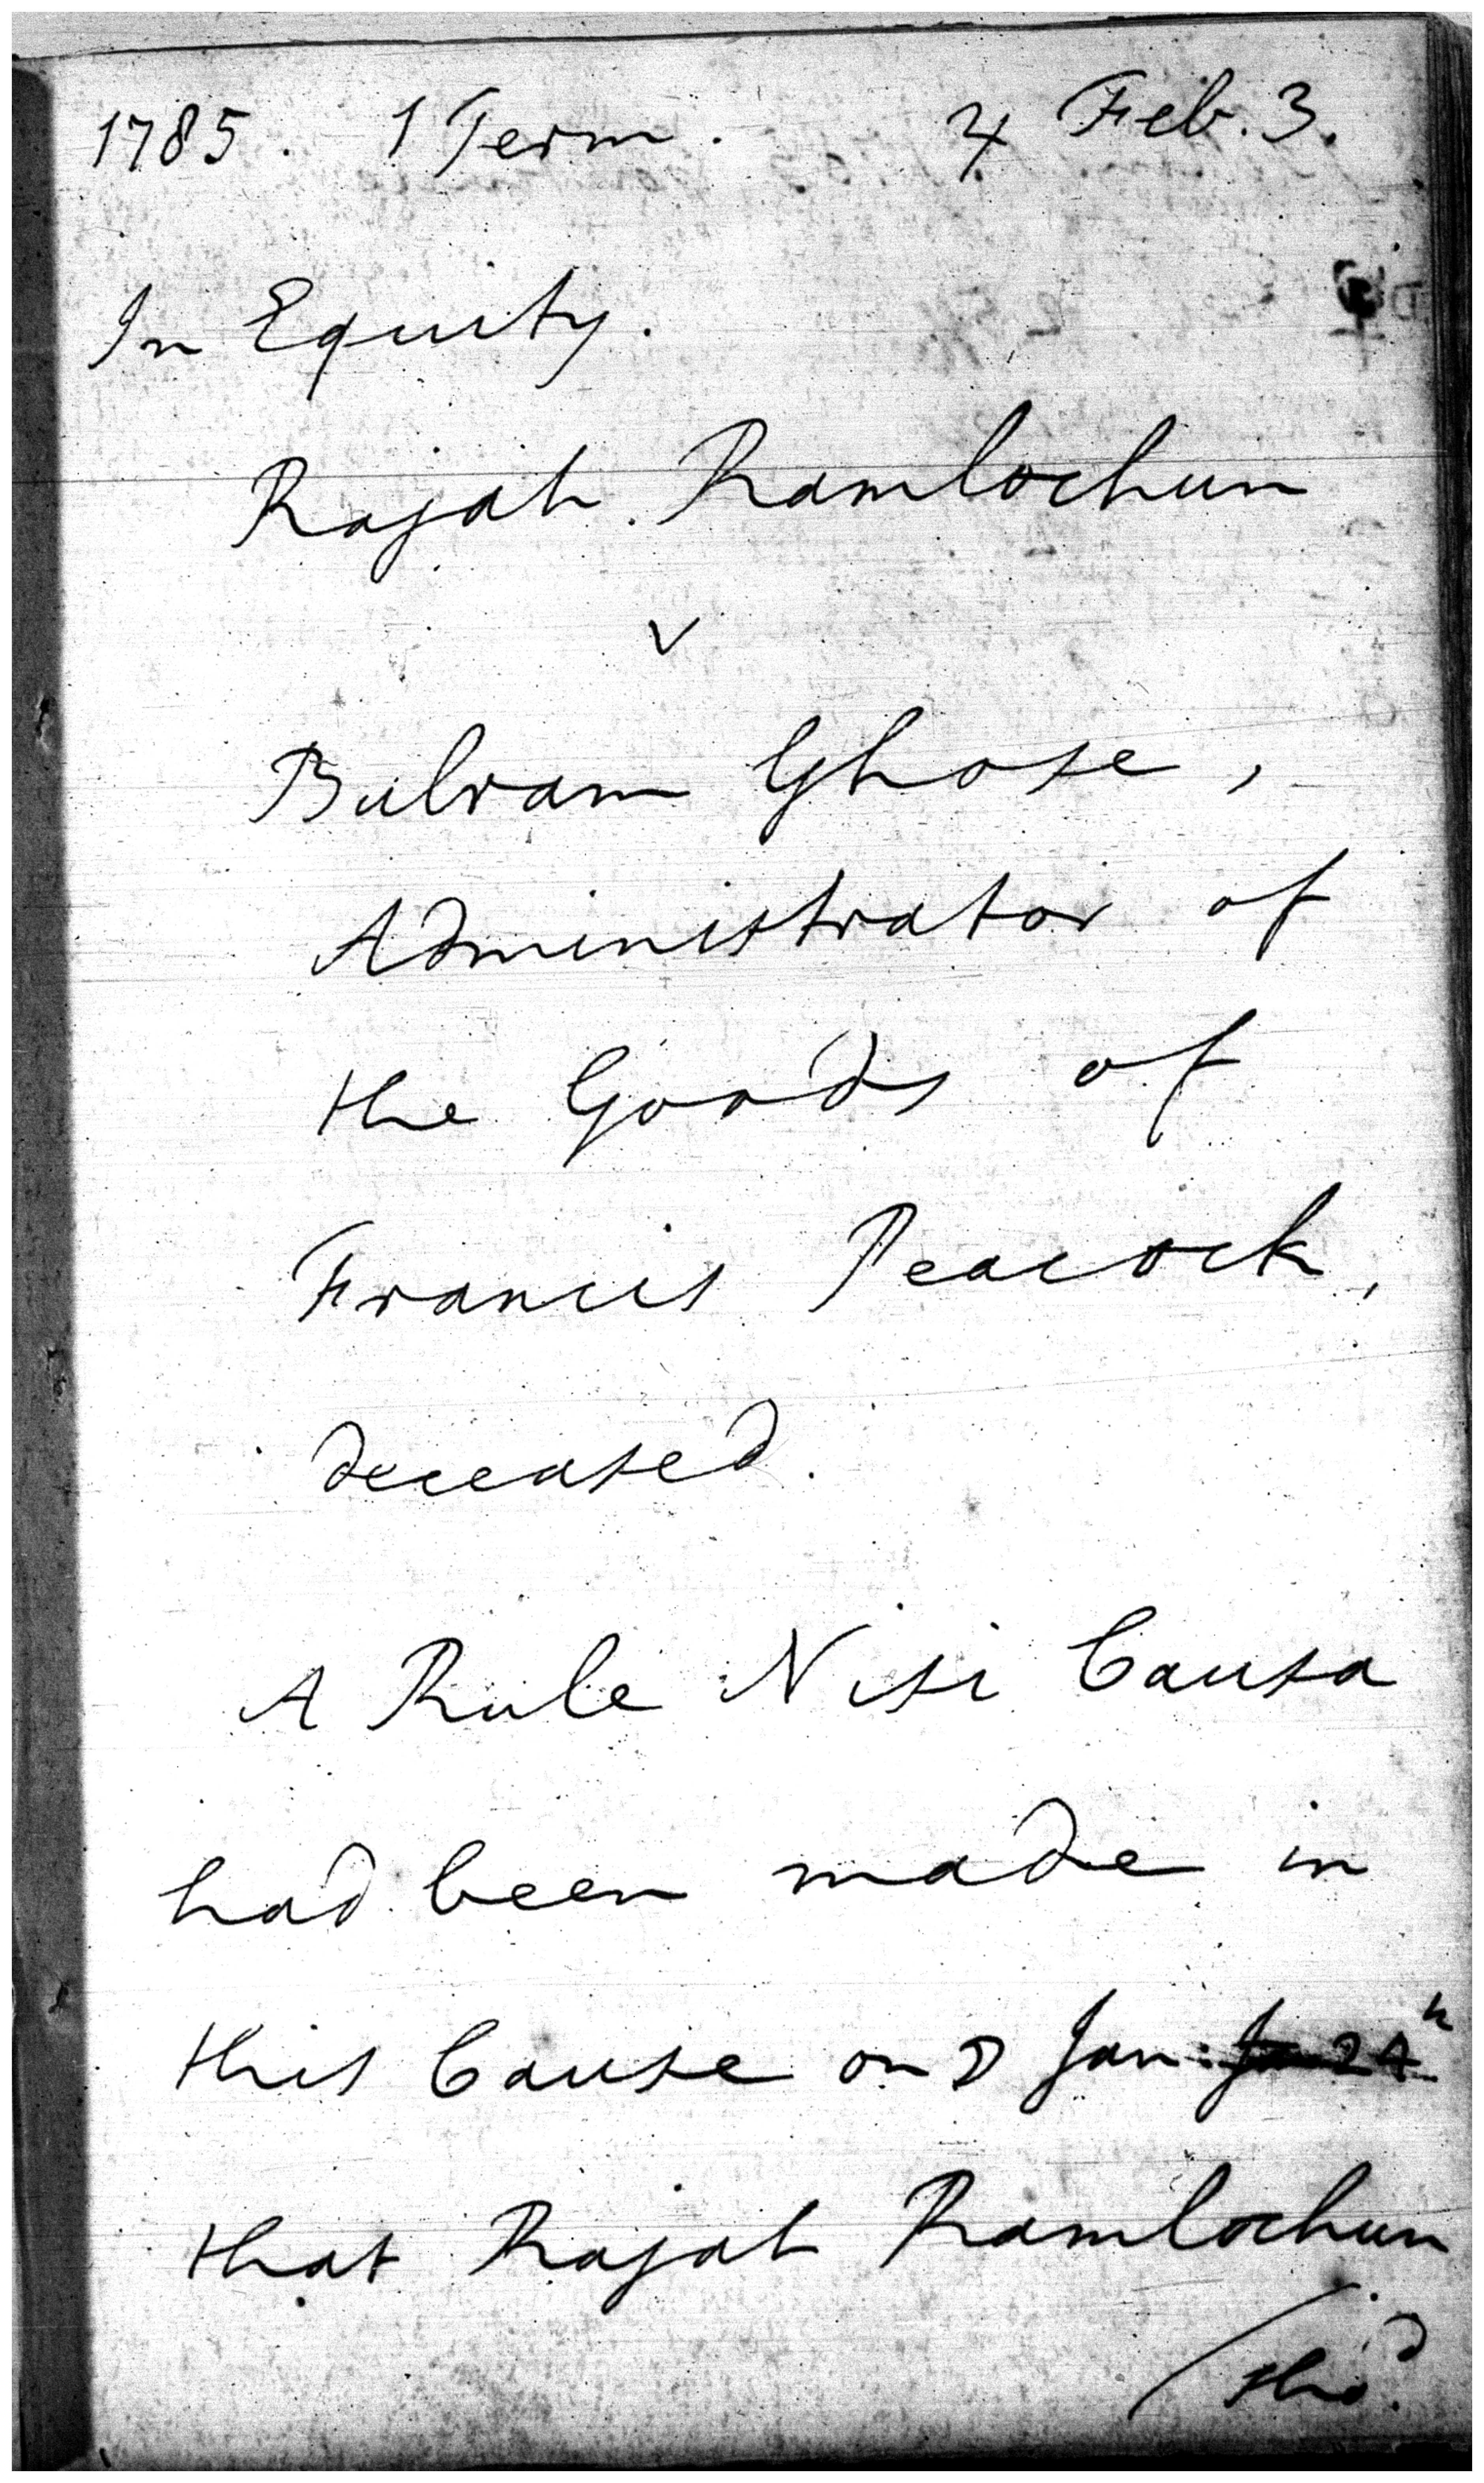 1785. 1 Term. ♃ Feb. 3.
In Equity.
Rajah Ramlochun
v
Bulram Ghose,
Administrator of
the Goods of
Francis Peacock,
deceased.
A Rule Nisi Causa
had been made in
this Cause on Jan:
that Rajah Ramlochun